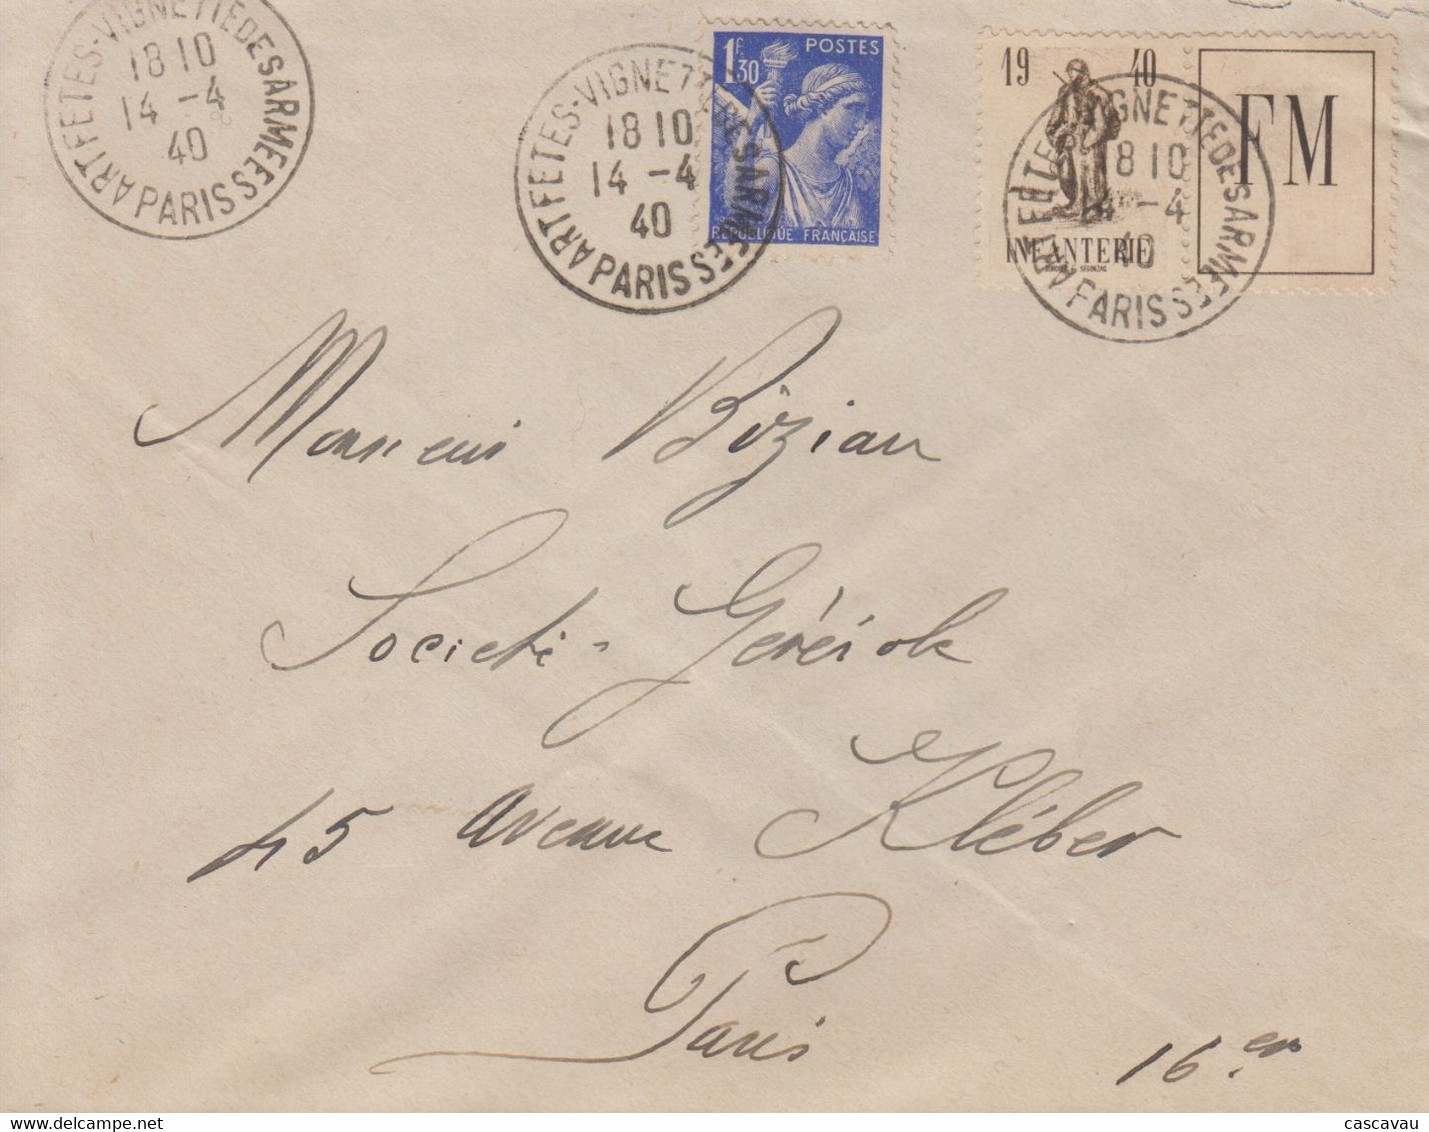 ART FETES-VIGNETTE DES ARMEES
18 10
14 -4
40
PARIS S
ART FETES-VIGNETTE DES ARMEES
18 10
14 -4
40
PARIS S
1F30 POSTES
REPUBLIQUE FRANÇAISE
19 40
INFANTERIE
FM
VIGNETTE DES ARMEES
18 10
14 -4
40
PARIS S
Monsieur Bizian
Société Générale
45 Avenue Kléber
Paris 16er
cascavau